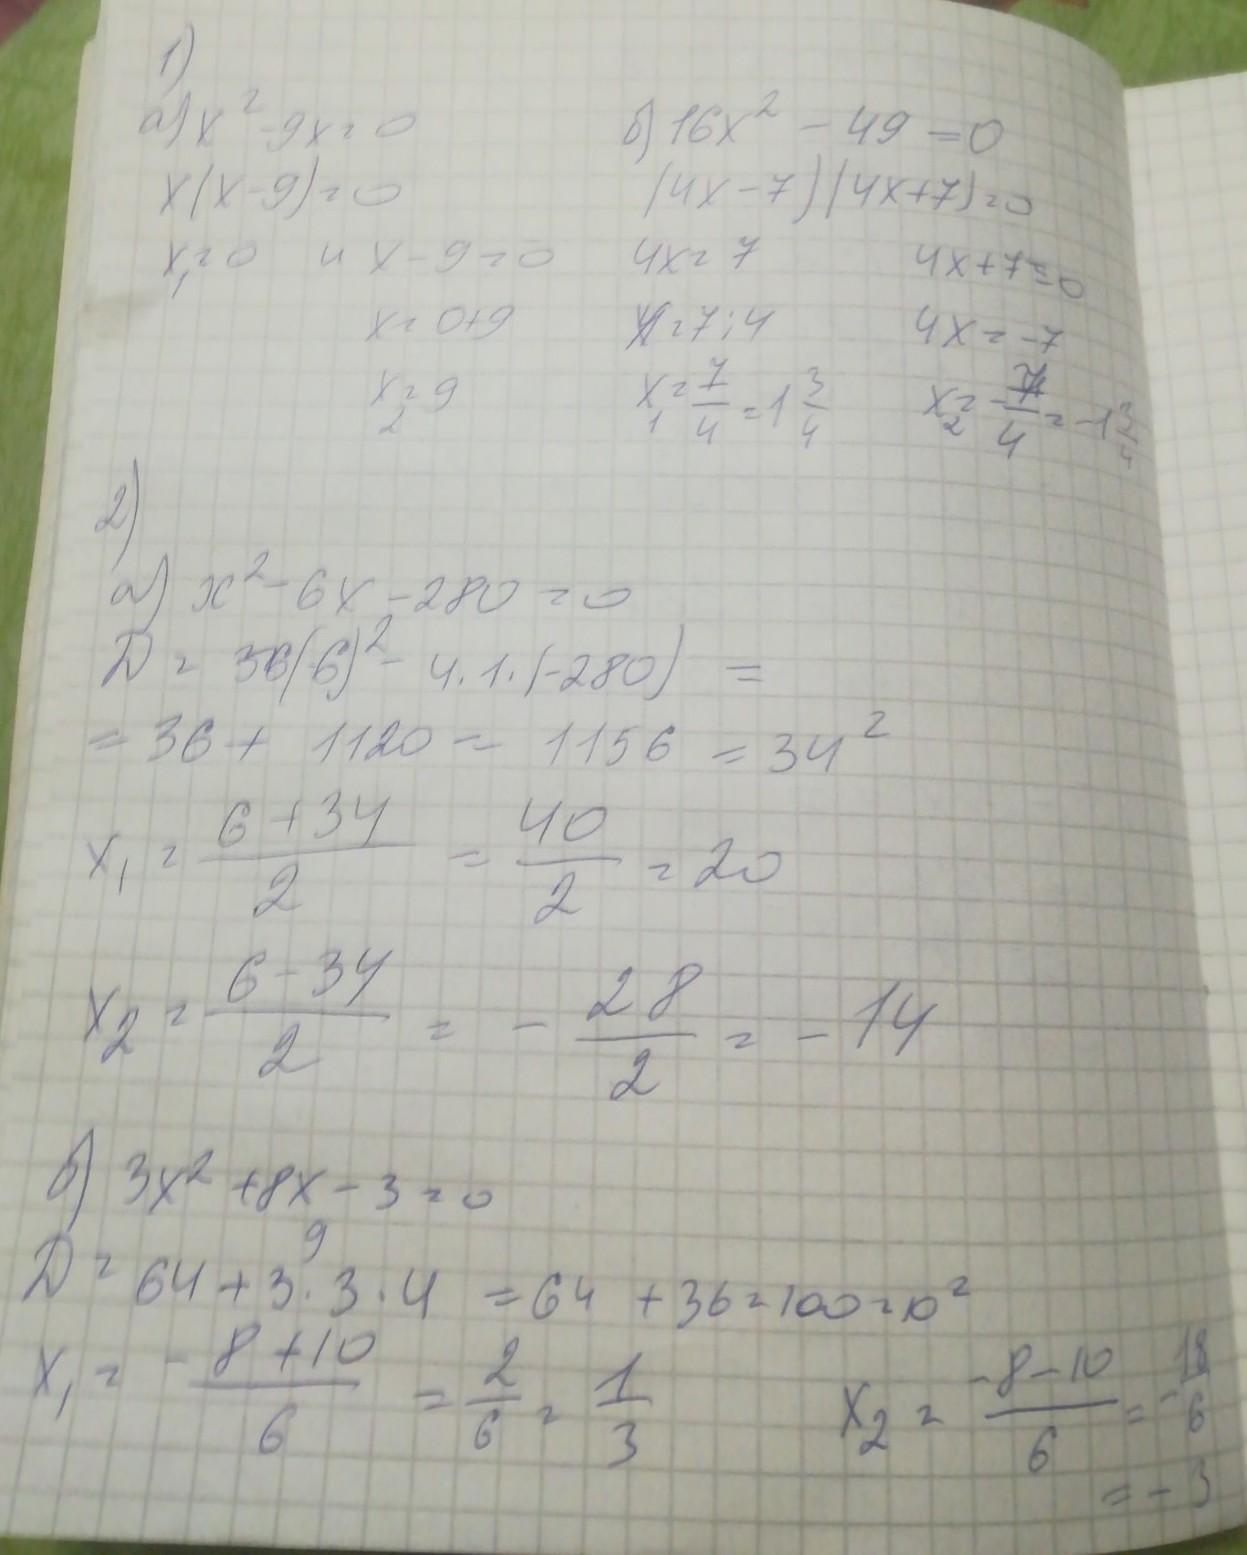 1)
а) x² - 9x = 0
x(x-9) = 0
x₁ = 0 и x - 9 = 0
x = 0+9
x₂ = 9
б) 16x² - 49 = 0
(4x-7)(4x+7) = 0
4x = 7 4x+7 = 0
x = 7:4 4x = -7
x₁ = 7/4 = 1 3/4 x₂ = -7/4 = -1 3/4
2)
а) x² - 6x - 280 = 0
D = 36(-6)² - 4·1·(-280) =
= 36 + 1120 = 1156 = 34²
x₁ = (6+34)/2 = 40/2 = 20
x₂ = (6-34)/2 = - 28/2 = - 14
б) 3x² + 8x - 3 = 0
9
D = 64 + 3·3·4 = 64 + 36 = 100 = 10²
x₁ = (-8+10)/6 = 2/6 = 1/3 x₂ = (-8-10)/6 = -18/6
= - 3